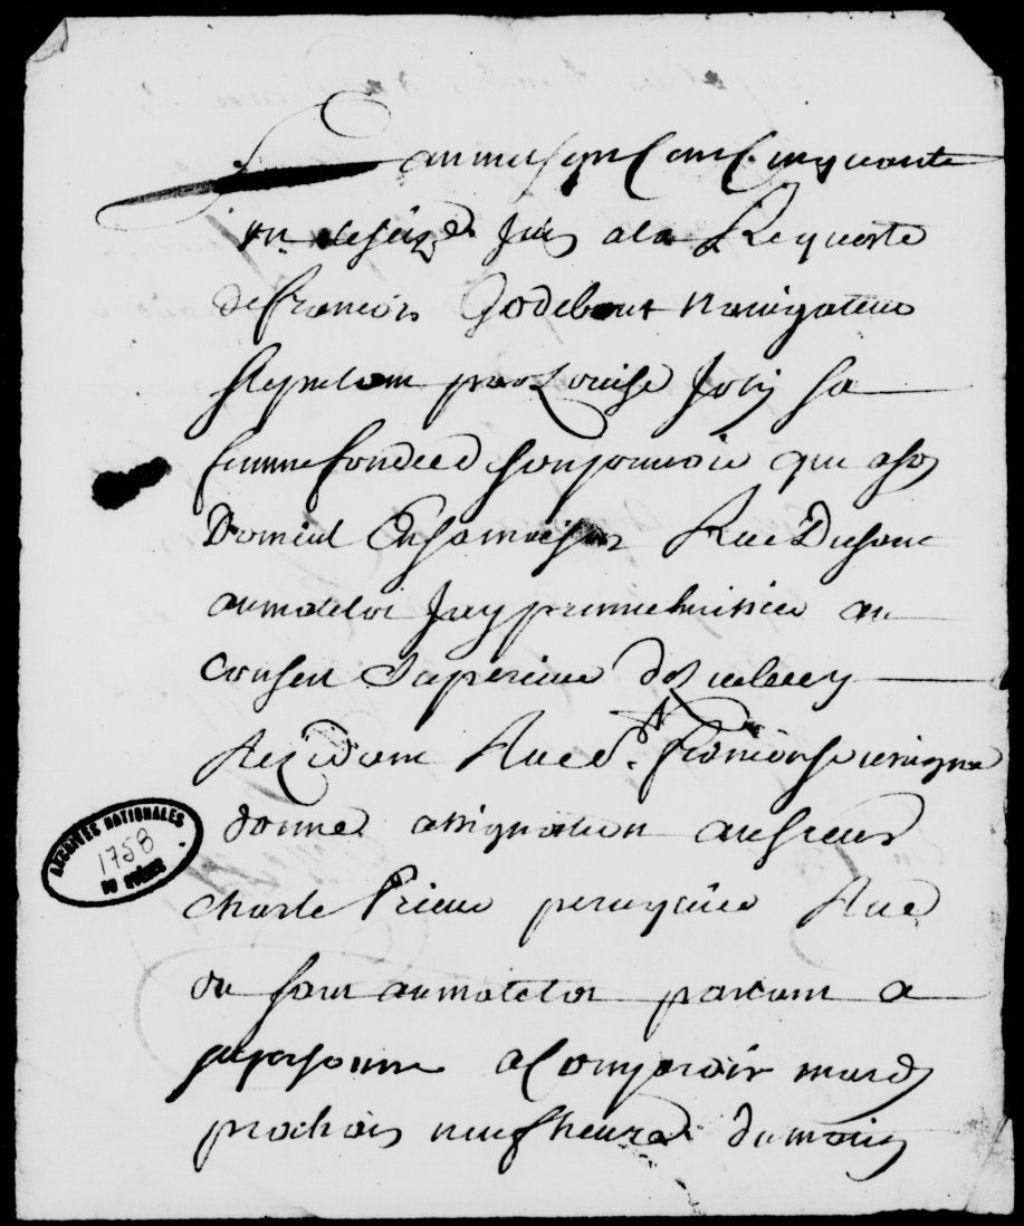 Lan mil sept cent cinquante
un le seize Juin a la Requeste
de francois Godebout Navigateur
stipulant par Louise Joly sa
femme fondeé de son pouvoir qui a son
Domicil En sa maison Rue Du saut
au matelot Jay premier huissier au
Conseil Superieur de quebecq
Rezidant Rue St. francois soussigne
donné assignation au sieur
charle Prieur peruquier Rue
du saut au matelot parlant a
sa personne a Comparoir mardy
prochain neuf heures du matin
ARCHIVES NATIONALES
1758
DU QUÉBEC